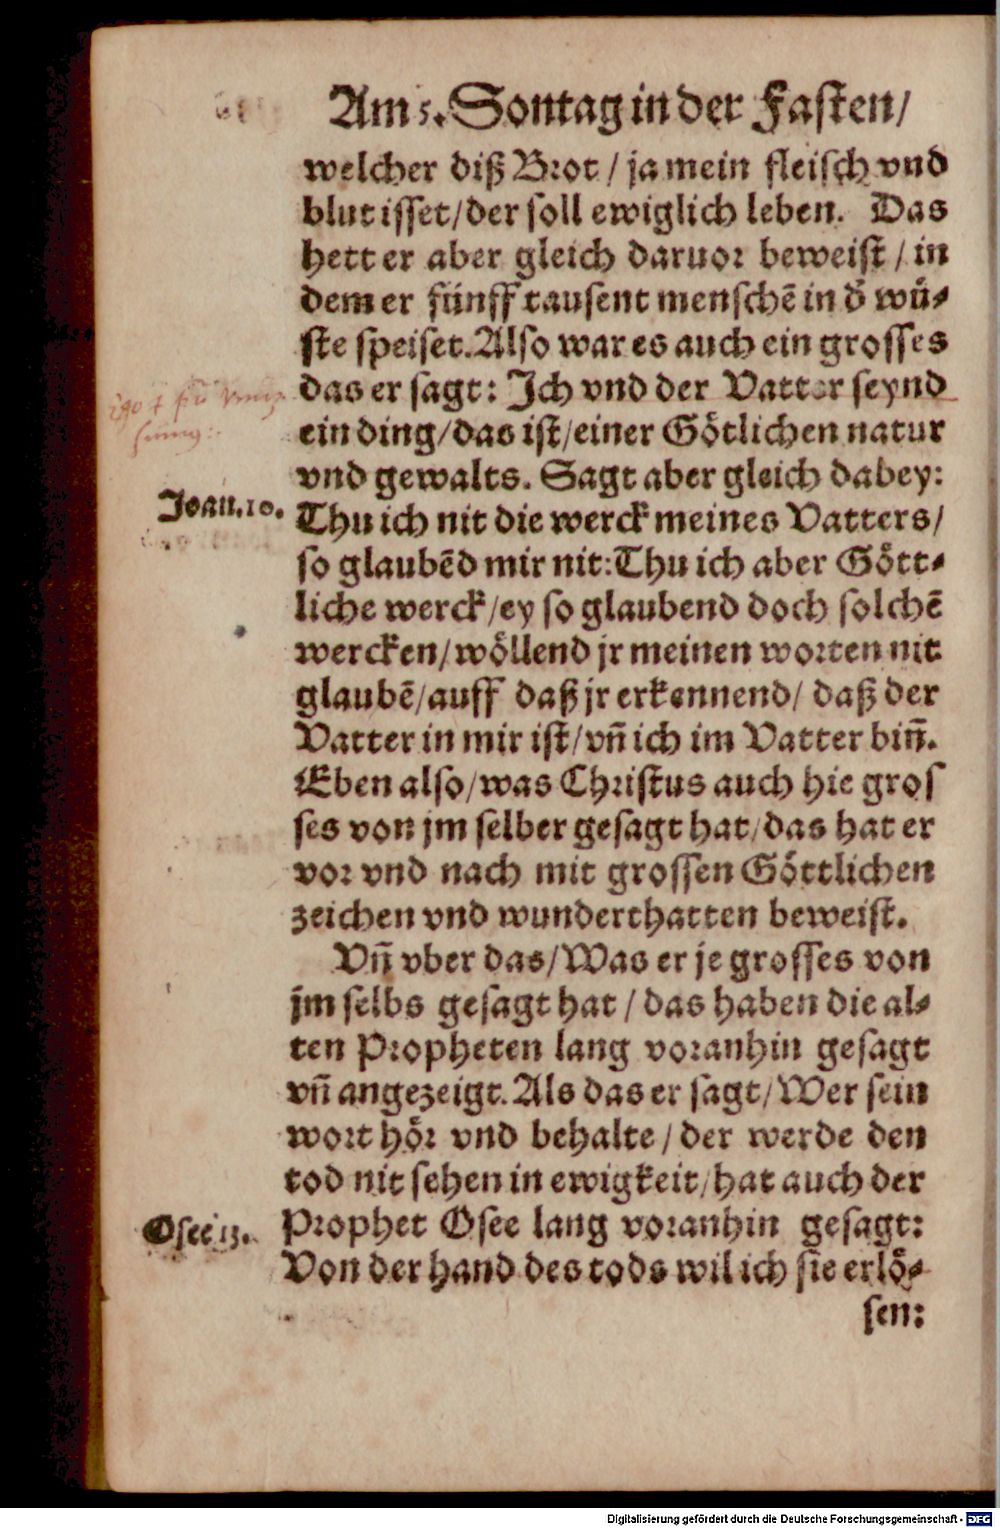 Am 5. Sontag in der Fasten/
welcher diß Brot / ja mein fleisch vnd
blut isset/der soll ewiglich leben. Das
hett er aber gleich daruor beweist / in
dem er fünff tausent menschē in d̕ wuͤ-
ste speiset. Also war es auch ein grosses
das er sagt: Ich vnd der Vatter seynd
ein ding/das ist/einer Goͤtlichen natur
vnd gewalts. Sagt aber gleich dabey:
Joan.10.
Thu ich nit die werck meines Vatters/
so glaubēd mir nit: Thu ich aber Goͤtt-
liche werck/ey so glaubend doch solchē
wercken/woͤllend jr meinen worten nit
glaubē/auff daß jr erkennend/ daß der
Vatter in mir ist/vn̄ ich im Vatter bin̄.
Eben also/was Christus auch hie gros
ses von jm selber gesagt hat/das hat er
vor vnd nach mit grossen Goͤttlichen
zeichen vnd wunderthatten beweist.
Vn̄ vber das/Was er je grosses von
jm selbs gesagt hat / das haben die al-
ten Propheten lang voranhin gesagt
vn̄ angezeigt. Als das er sagt/Wer sein
wort hoͤr vnd behalte / der werde den
tod nit sehen in ewigkeit/hat auch der
Osee 13.
Prophet Osee lang voranhin gesagt:
Von der hand des tods wil ich sie erloͤ-
sen:
Digitalisierung gefördert durch die Deutsche Forschungsgemeinschaft - DFG